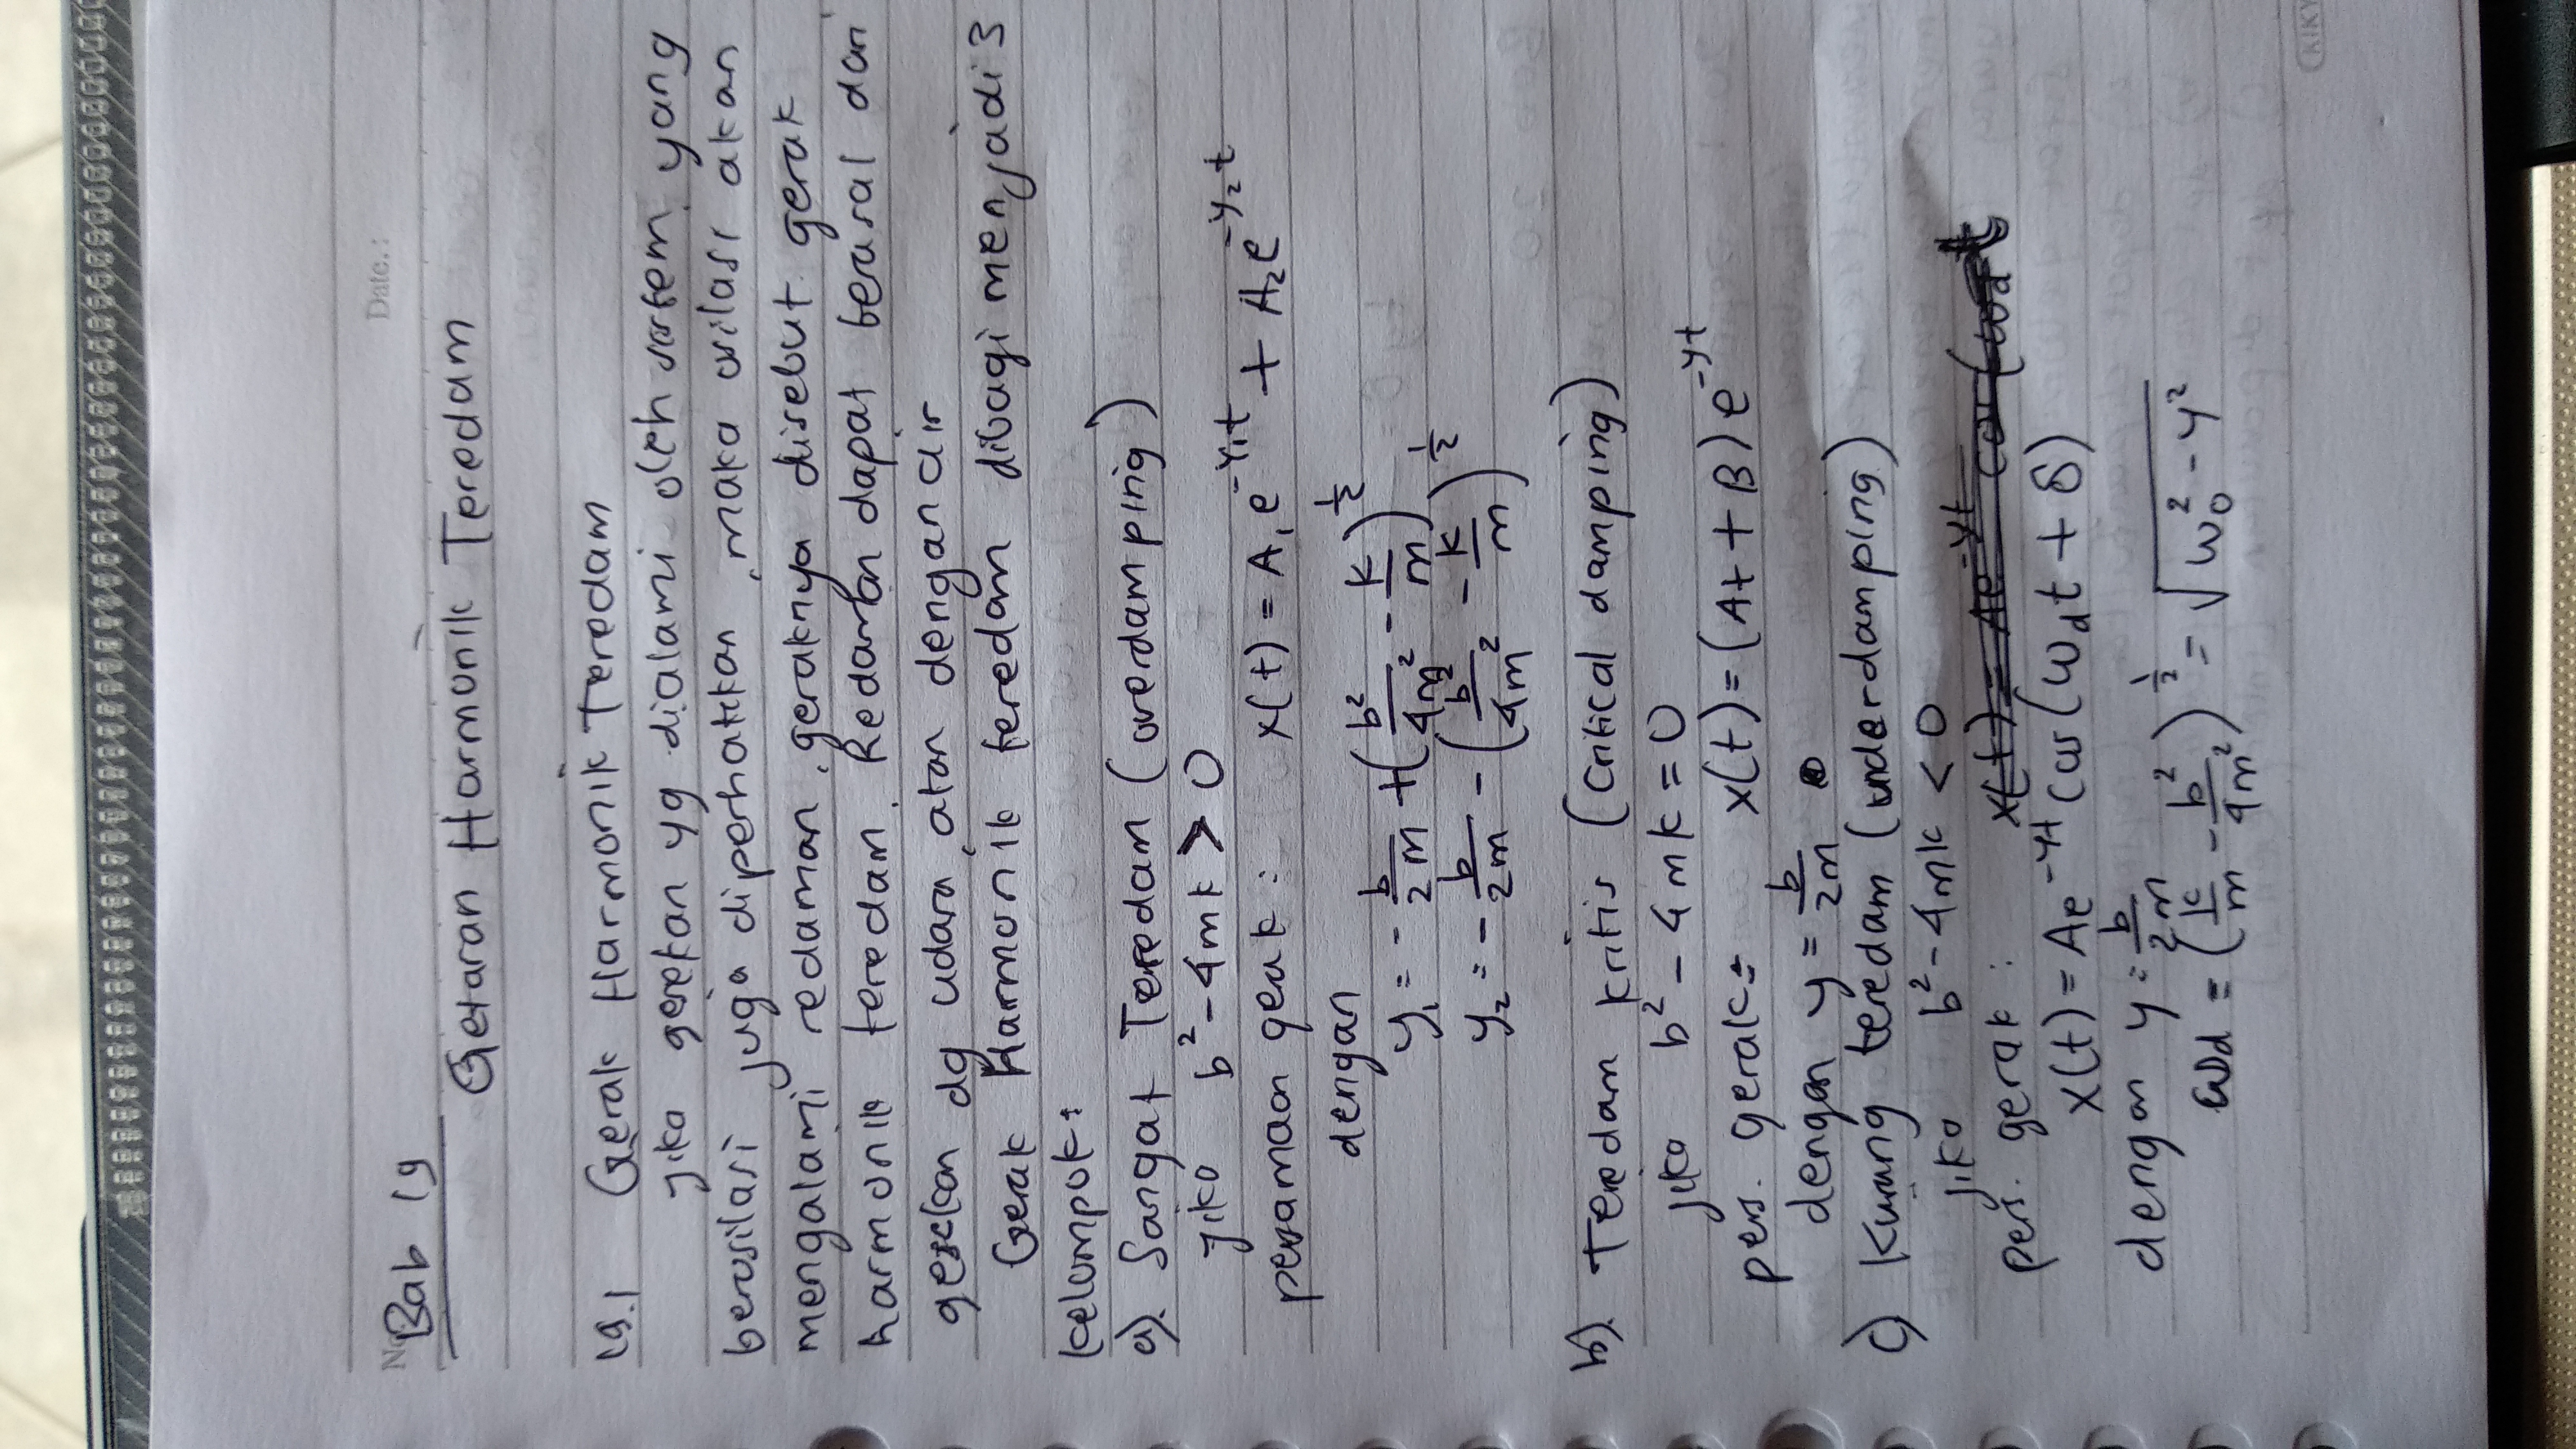 No.
Date.:
Bab 19
Getaran Harmonik Teredam
19.1 Gerak Harmonik Teredam
Jika gesekan yg dialami oleh sistem yang
berosilasi juga diperhatikan, maka osilasi akan
mengalami redaman, geraknya disebut gerak
harmonik teredam. Redaman dapat berasal dari
gesekan dg udara, atau dengan air
Gerak Harmonik teredam dibagi menjadi 3
kelompok:
a). Sangat Teredam (overdamping)
jika b² - 4mk > 0
persamaan gerak : x(t) = A₁ e^(-γ₁t) + A₂ e^(-γ₂t)
dengan
γ₁ = - b/2m + (b²/4m² - k/m)^(1/2)
γ₂ = - b/2m - (b²/4m² - k/m)^(1/2)
b). Teredam kritis (critical damping)
jika b² - 4mk = 0
pers. gerak: x(t) = (At + B) e^(-γt)
dengan γ = b/2m
c) Kurang teredam (underdamping)
jika b² - 4mk < 0
pers. gerak : x(t) = Ae^(-γt) cos(ωd t
x(t) = Ae^(-γt) cos(ωd t + δ)
dengan γ = b/2m
ωd = (k/m - b²/4m²)^(1/2) = √(ω₀² - γ²)
KIKY